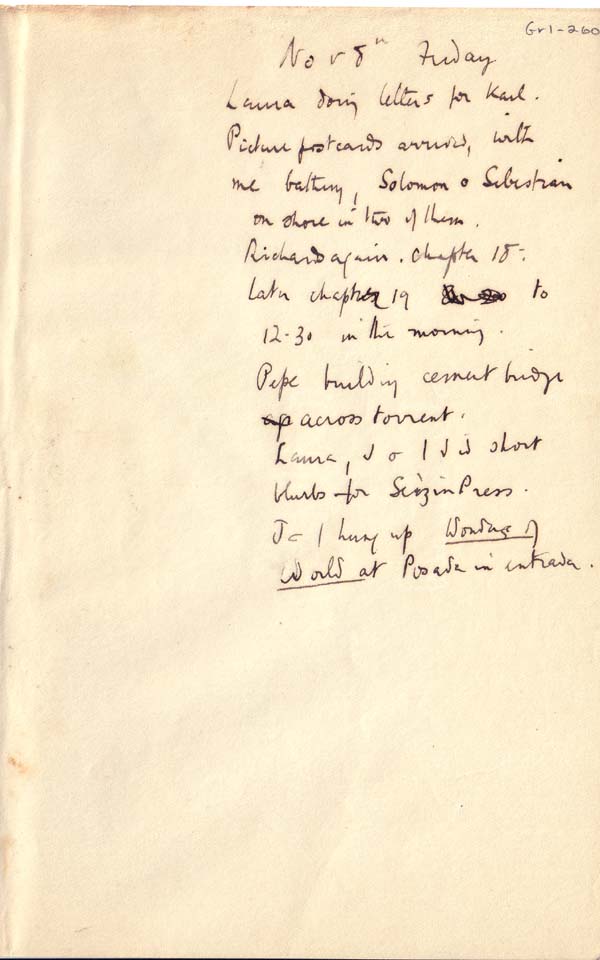 Gr1-260
Nov 8th Friday
Laura doing letters for Karl.
Picture postcards arrived, with
me bathing, Solomon & Sebastian
on shore in two of them.
Richards again. Chapter 18.
Later chapter 19 to
12-30 in the morning.
Pepe building cement bridge
up across torrent.
Laura, J & I did short
blurbs for Seizin Press.
J & I hung up Wonders of
World at Posada in entrada.